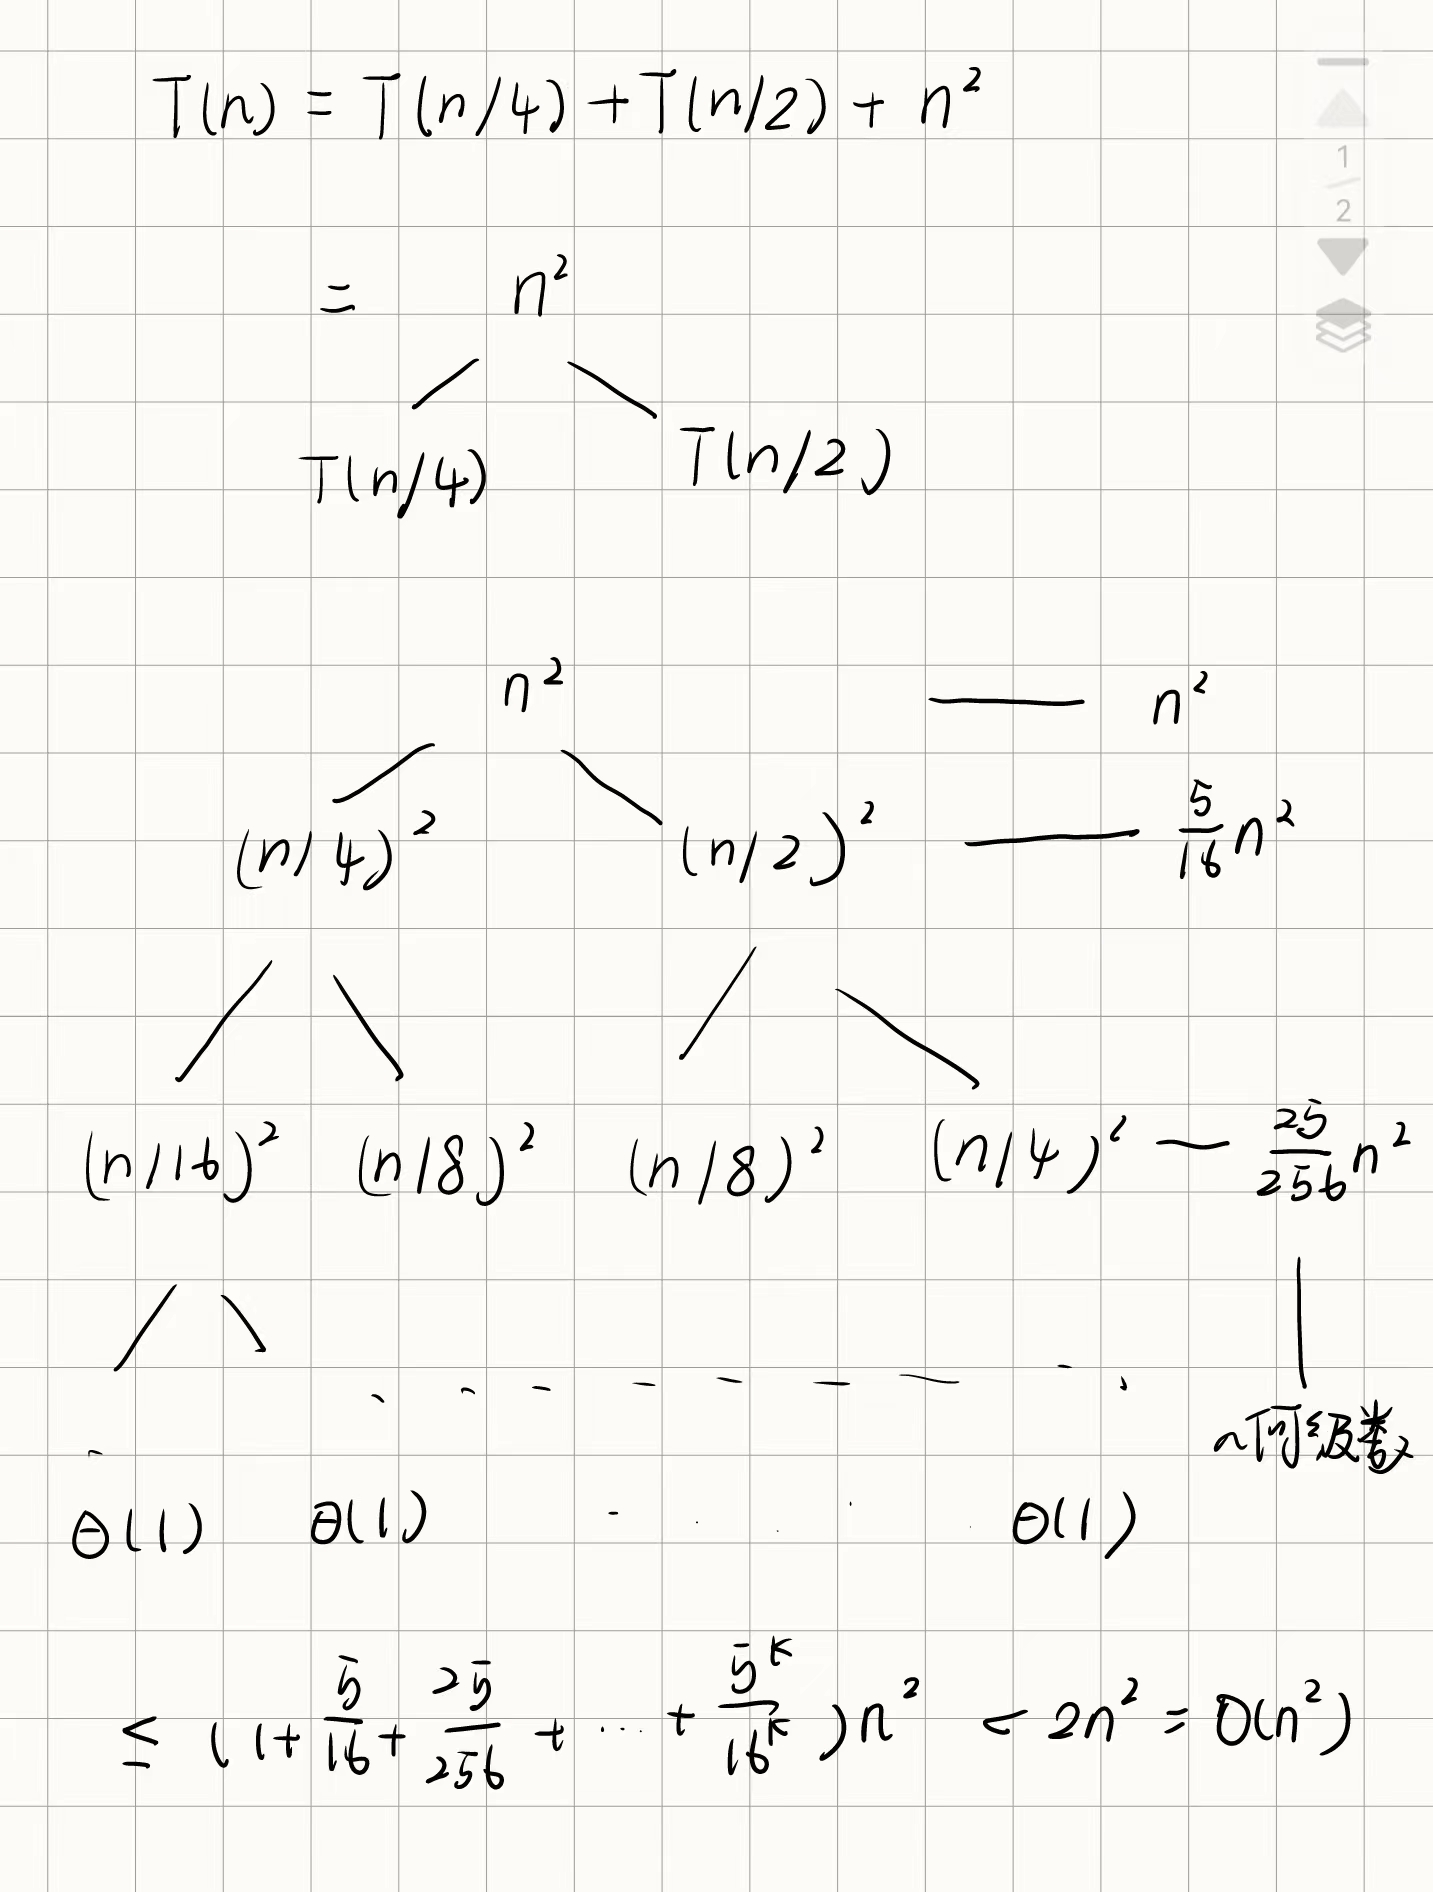 T(n) = T(n/4) + T(n/2) + n²
= n²
T(n/4) T(n/2)
n² — n²
(n/4)² (n/2)² — 5/16 n²
(n/16)² (n/8)² (n/8)² (n/4)² — 25/256 n²
几何级数
θ(1) θ(1) . . . . θ(1)
≤ (1+ 5/16 + 25/256 + ... + 5^k/16^k )n² < 2n² = O(n²)
1
2